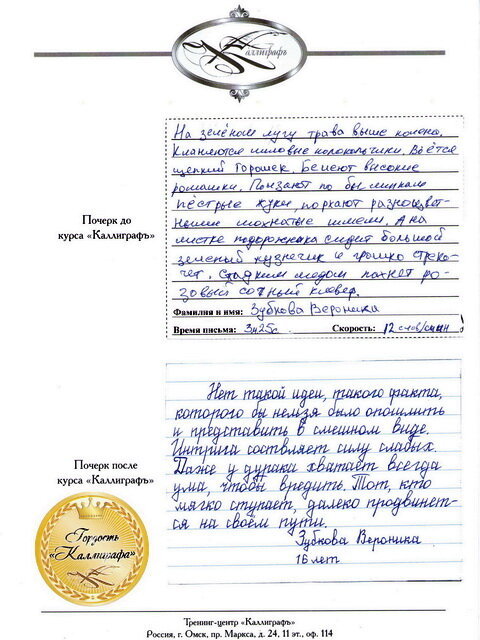 Каллиграфъ
На зелёном лугу трава выше колена.
Кланяются лиловые колокольчики. Вьётся
цепкий горошек. Белеют высокие
ромашки. Ползают по былинкам
пёстрые жуки, порхают разноцвет-
мохнатые шмели. А на
листке подорожника сидит большой
зеленый кузнечик и громко стреко-
чет. Сладким медом пахнет ро-
зовый сочный клевер.
Почерк до
курса «Каллиграфъ»
Фамилия и имя: Зубкова Вероника
Время письма: 3м25с. Скорость: 12 слов/мин
Нет такой идеи, такого факта,
которого бы нельзя было опошлить
и представить в смешном виде.
Интрига соствляет силу слабых.
Даже у дурака хватает всегда
ума, чтобы вредить. Тот, кто
мягко ступает, далеко продвинет-
ся на своём пути.
Зубкова Вероника
16 лет
Почерк после
курса «Каллиграфъ»
Гордость
«Каллиграфа»
Тренинг-центр «Каллиграфъ»
Россия, г. Омск, пр. Маркса, д. 24, 11 эт., оф. 114